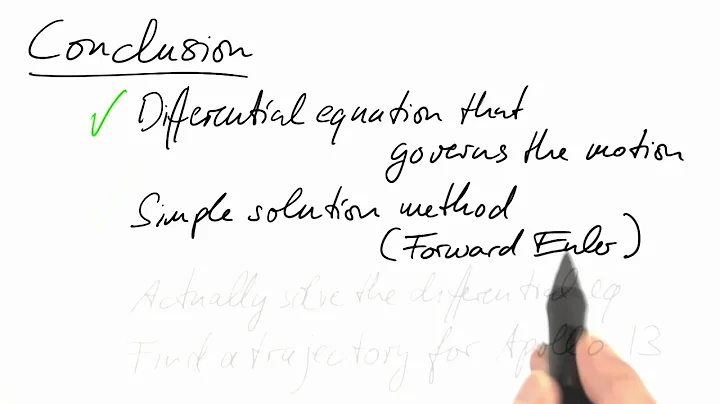 Conclusion
✓ Differential equation that
governs the motion
Simple solution method
(Forward Euler)
Actually solve the differential eq
Find a trajectory for Apollo 13